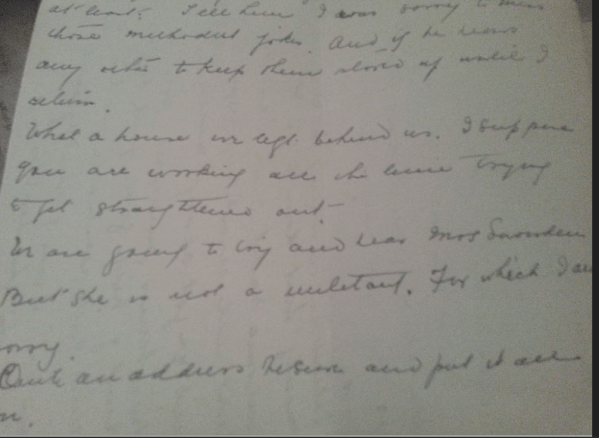 at least. Tell him I was sorry to miss
those methodist jokes. And if he hears
any others to keep them stored up until I
return.
What a house we left behind us. I suppose
you are working all the time trying
to get straightened out.
We are going to try and hear Mrs Snowden
But she is not a militant. For which I am
sorry.
Quite an address be sure and put it all
on.